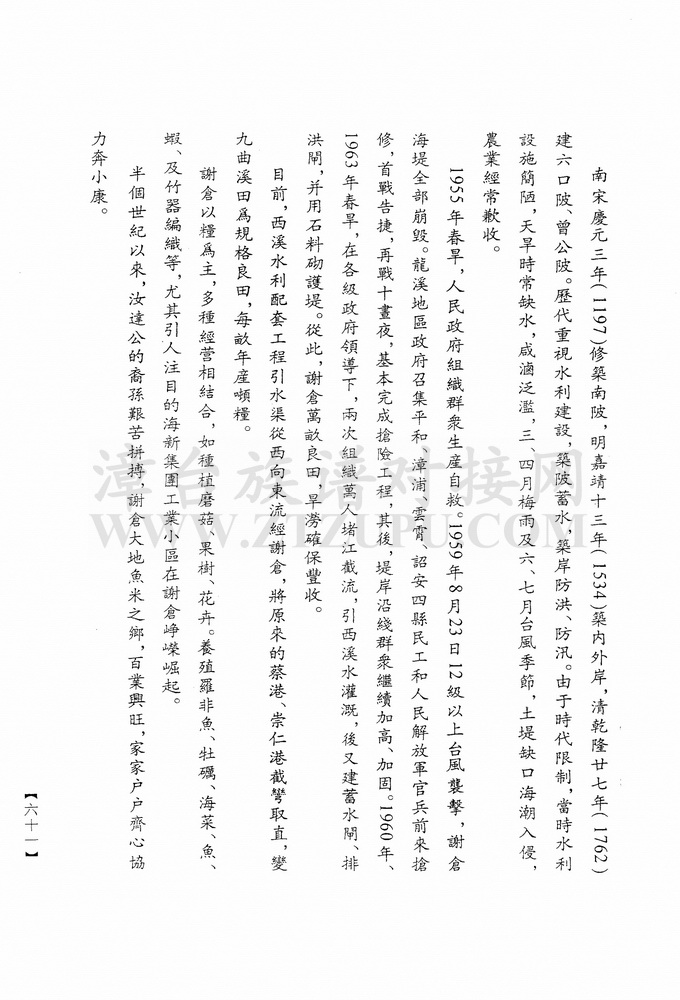 南宋慶元三年(1197)修築南陂，明嘉靖十三年(1534)築内外岸，清乾隆廿七年(1762)
建六口陂、曾公陂。歷代重視水利建設，築陂蓄水，築岸防洪、防汛。由于時代限制，當時水利
設施簡陋，天旱時常缺水，咸滷泛濫，三、四月梅雨及六、七月台風季節，土堤缺口海潮入侵，
農業經常歉收。
1955年春旱，人民政府組織群衆生産自救。1959年8月23日12級以上台風襲擊，謝倉
海堤全部崩毁。龍溪地區政府召集平和、漳浦、雲霄、詔安四縣民工和人民解放軍官兵前來搶
修，首戰告捷，再戰十晝夜，基本完成搶險工程，其後，堤岸沿綫群衆繼續加高、加固。1960年、
1963年春旱，在各級政府領導下，兩次組織萬人堵江截流，引西溪水灌溉，後又建蓄水閘、排
洪閘，并用石料砌護堤。從此，謝倉萬畝良田，旱澇確保豐收。
目前，西溪水利配套工程引水渠從西向東流經謝倉，將原來的蔡港、崇仁港截彎取直，變
九曲溪田爲規格良田，每畝年産噸糧。
謝倉以糧爲主，多種經營相結合，如種植磨菇、果樹、花卉。養殖羅非魚、牡礪、海菜、魚、
蝦、及竹器編織等，尤其引人注目的海新集團工業小區在謝倉崢嶸崛起。
半個世紀以來，汝達公的裔孫艱苦拼搏，謝倉大地魚米之鄉，百業興旺，家家户户齊心協
力奔小康。
【六十一】
漳台族谱对接网
WWW.ZTZUPU.COM